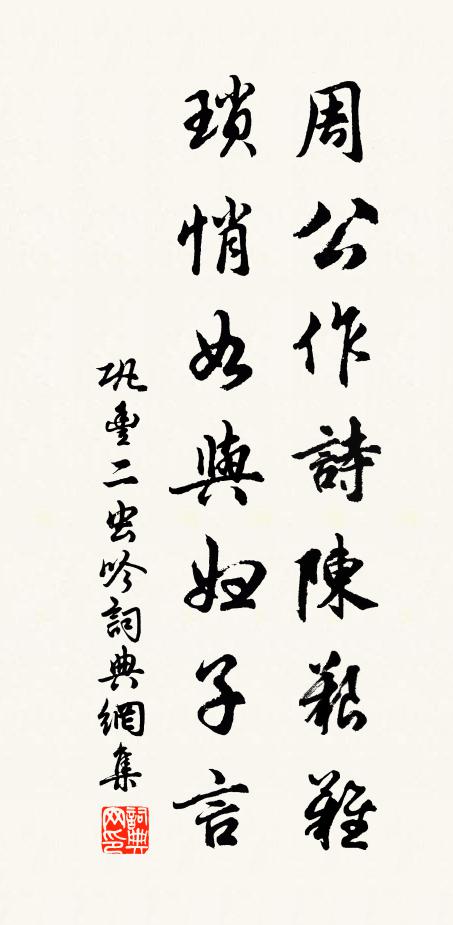 周公作詩陳艱難
瑣悄如與婦子言
巩豐二虫吟詞典網集
詞典网印